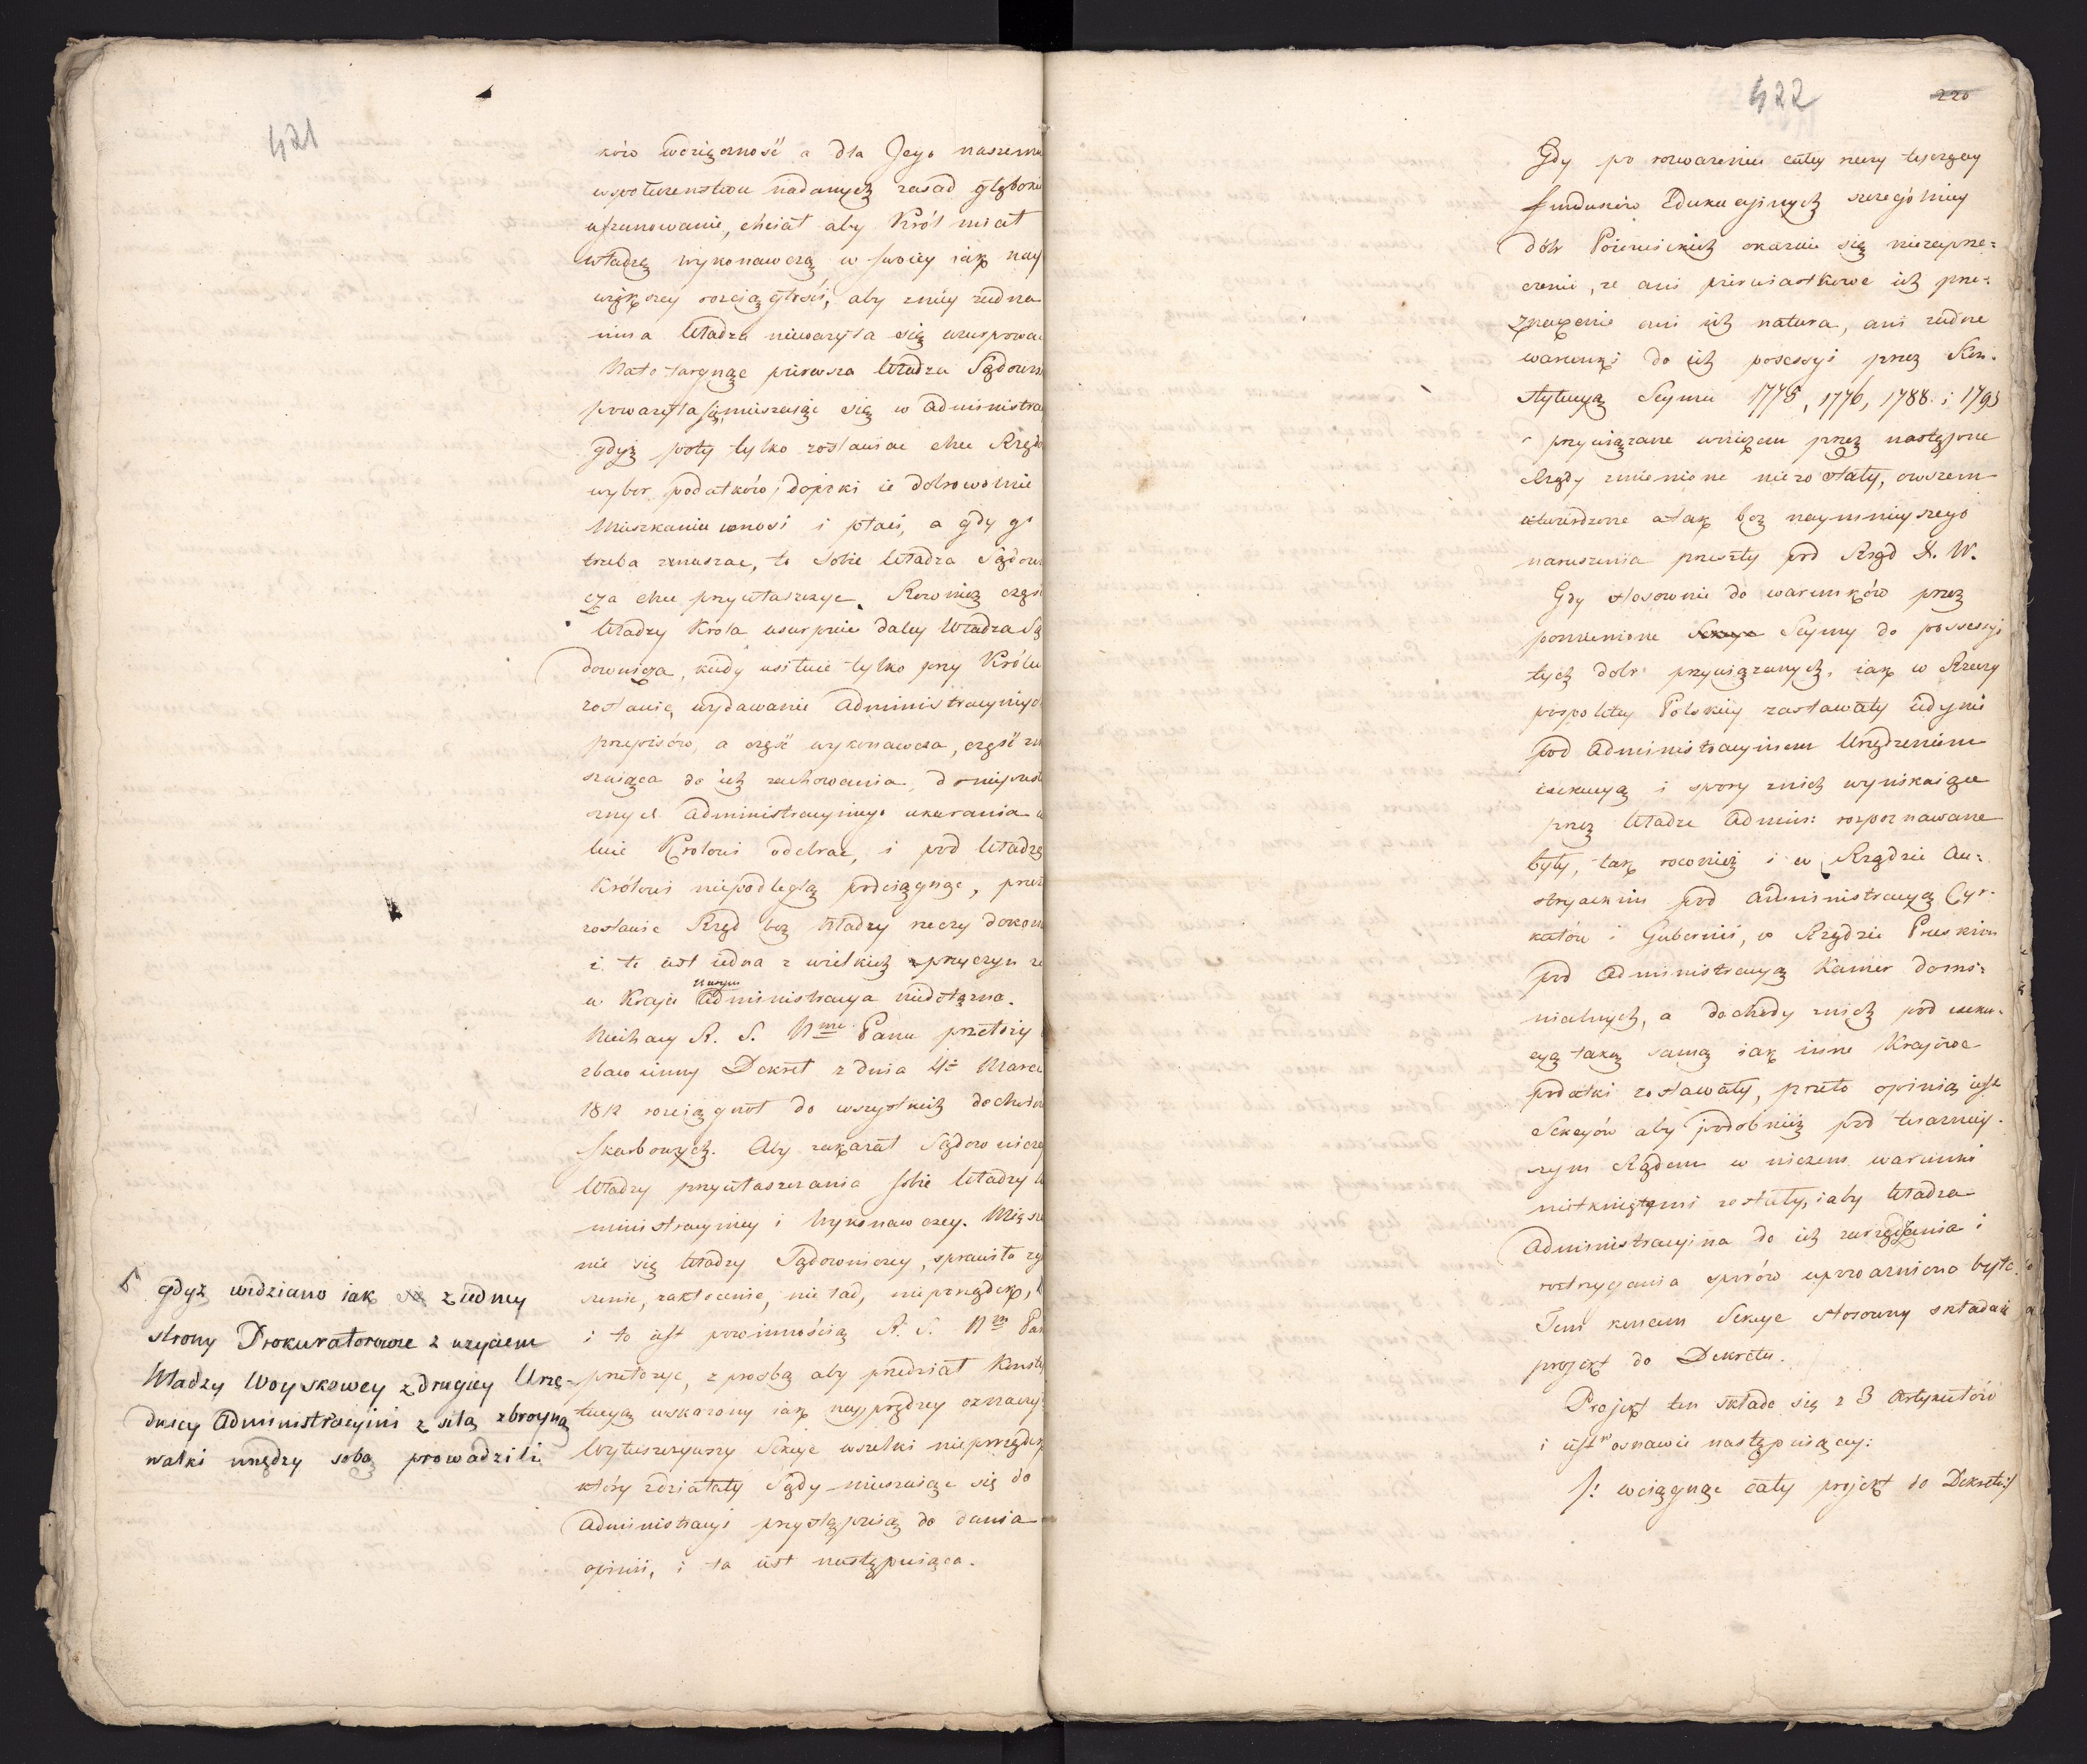 421
ków wdzięczność a dla Jego naszemu
społeczeństwu nadanych zasad głębokie
uszanowanie, chciał aby Król miał
władzę wykonawczą w swoiey iak nay
większey rozciągłości, aby zniey żadna
inna Władza nieważyła się uzurpować
Na to targnąć pierwsza Władza Sądown
poważyła się mieszaiąc się w Administra
gdyż poty tylko zostawiać chce Rządo
wybor podatków, dopóki ie dobrowolnie
Mieszkaniec wnosi i płaci, a gdy go
trzeba zmuszać, to sobie Władza Sądow
cza chce przywłaszczyć. Rownież częś
Władzy Krola usurpuie daley Władza Są
downicza, kiedy usiłuie tylko przy Królu
zostawić wydawanie Administracyinych
przepisów, a część wykonawcza, część zm
szaiąca do ich zachowania, do nieposłu
sznych Administracyinego ukarania u
łuie Krolowi odebrać, i pod Władzę
Królowi niepodległą podciągnąć, przez
zostanie Rząd bez Władzy rzeczy dokona
i to iest iedna z wielkich przyczyn że
w Kraju Naszym Administracya niedołężna.
Niechay R. S. N<sup>mu</sup> Panu przełoży
zbawienny Dekret z dnia 4<sup>o</sup> Marca
1812 rozciągnął do wszystkich dochodów
skarbowych. Aby zakazał Sądowniczey
Władzy przywłaszczania sobie Władzy A
ministracyiney i Wykonawczey. Miesza
nie się Władzy Sądowniczey, sprawiło zg
szenie, zakłócenie, nieład, nieporządek,
gdyż widziano iak z iedney
strony Prokuratorowie z użyciem
Władzy Woyskowey z drugiey Urzę-
dnicy Administracyini z siłą zbroyną
walki między sobą prowadzili
i to iest powinnością R. S. N<sup>mu</sup> Pan
przełożyć, z prośbą aby przedział Konsty
tucyą wskazany iak nayprędzey oznaczył
Wyłuszczywszy Sekcye wszelki nieporządek
który zdziałały Sądy mieszaiąc się do
Administracyi przystępuią do dania
opinii, i ta iest następuiąca.
422
220
Gdy po rozważeniu całey rzeczy tyczącey
funduszów Edukacyinych szczególniey
dóbr Poiezuickich okazuie się niezaprze-
czenie, że ani pierwiastkowe ich prze-
znaczenie ani ich natura, ani żadne
warunki do ich possessyi przez Kon-
stytucyą Seymu 1775, 1776, 1788 i 1793
przywiązane wniczem przez następne
Rządy zmienione niezostały, owszem
utwierdzone a tak bez naymnieyszego
naruszenia przeszły pod Rząd X. W.
Gdy stosownie do warunków przez
pomienione Seymy do possessyi
tych dobr przywiązanych, iak w Rzeczy
pospolitey Polskiey zostawały iedynie
pod Administracyinem Urządzeniem
exekucyą i spory znich wynikaiące
przez Władze Admin: rozpoznawane
były, tak rownież i w Rządzie Au-
stryackim pod Administracyą Cyr-
kułów i Guberniów, w Rządzie Pruskim
pod Administracyą Kamer domi-
nialnych, a dochody znich pod exeku-
cyą taką samą iak inne Krajowe
podatki zostawały, przeto opinią iest
Sekcyów aby podobnież pod teraźniey-
szym Rządem w niczem warunki
nietknięte mi zostały, iaby Władza
Administracyina do ich zarządzania i
roztrzygania sporów upoważniona była
Tem końcem Sekcye stosowny składaią
projekt do Dekretu.
Projekt ten składa się z 3 Artykułów
i iest w osnowie następuiącey:
/: wciągnąć cały projekt do Dekretu:/